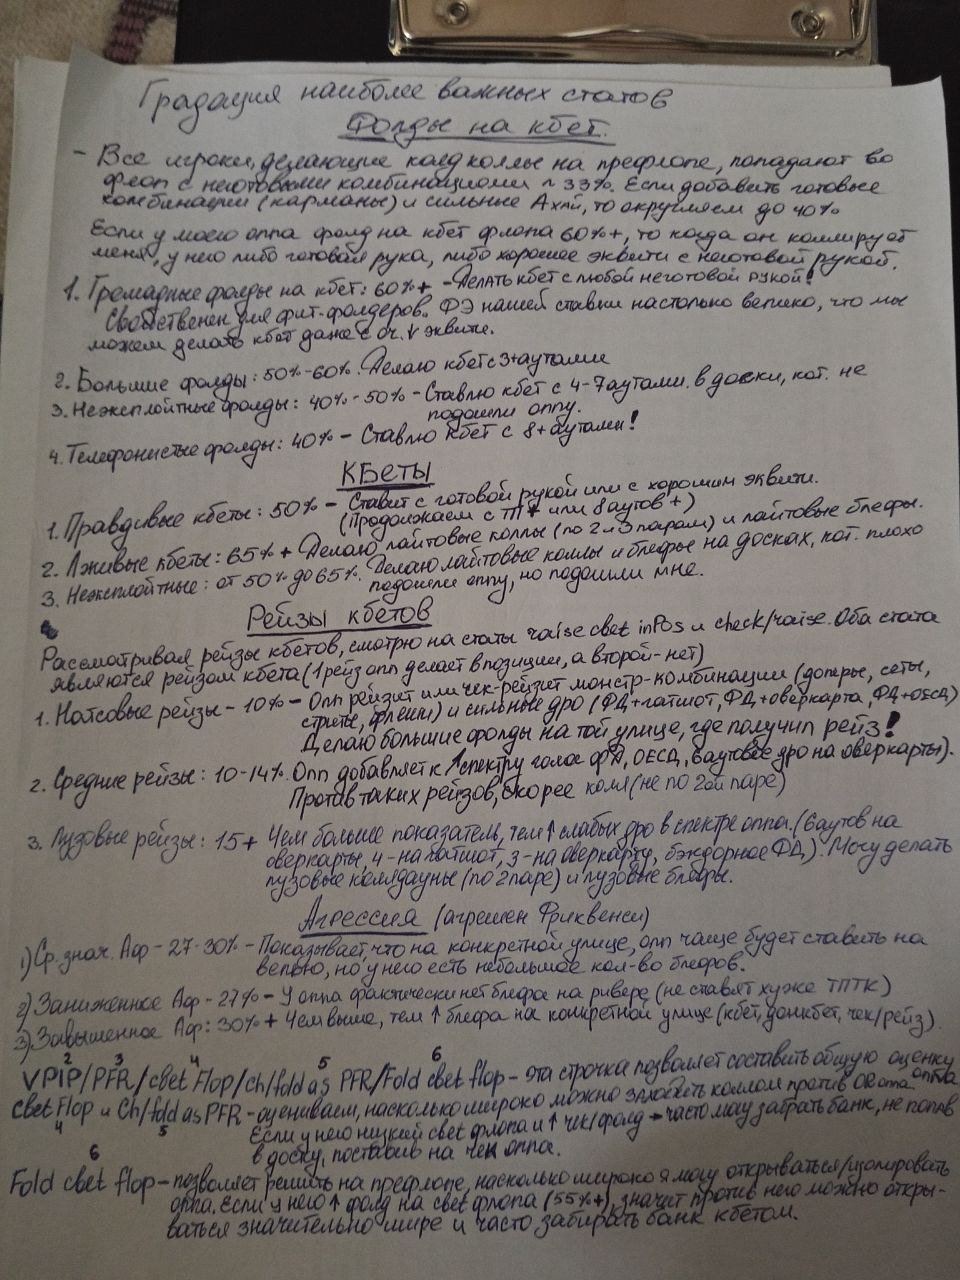 Градация наиболее важных статов
Фолды на кбет.
- Все игроки, делающие колд коллы на префлопе, попадают во
флоп с неготовыми комбинациями ~ 33%. Если добавить готовые
комбинации (карманы) и сильные Ахай, то округляем до 40%
Если у моего оппа фолд на кбет флопа 60%+, то когда он коллирует
меня, у него либо готовая рука, либо хорошее эквити с неготовой рукой.
1. Громадные фолды на кбет: 60%+ - Делать кбет с любой неготовой рукой!
Свойственен для фит-фолдеров. ФЭ нашей ставки настолько велико, что мы
можем делать кбет даже с оч. ↓ эквити.
2. Большие фолды: 50%-60%. Делаю кбет с 3+аутами
3. Неэксплойтные фолды: 40%-50% - Ставлю кбет с 4-7аутами. в доски, кот. не
подошли оппу.
4. Телефонистые фолды: 40% - Ставлю кбет с 8+аутами!
КБеты
1. Правдивые кбеты: 50% - Ставит с готовой рукой или с хорошим эквити.
(Продолжаем с ТП+ или 8аутов+)
2. Лживые кбеты: 65%+ Делаю лайтовые коллы (по 2и3 парам) и лайтовые блефы.
3. Неэксплойтные: от 50% до 65%. Делаю лайтовые коллы и блефы на досках, кот. плохо
подошли оппу, но подошли мне.
Рейзы кбетов
Рассматривая рейзы кбетов, смотрю на статы raise cbet inPos и check/raise. Оба стата
являются рейзом кбета (1 рейз опп делает в позиции, а второй - нет)
1. Натсовые рейзы - 10% - Опп рейзит или чек-рейзит монстр-комбинации (доперы, сеты,
стриты, флеши) и сильные дро (ФД+гатшот, ФД+оверкарта, ФД+ОЕСД)
Делаю большие фолды на той улице, где получил рейз!
2. Средние рейзы: 10-14%. Опп добавляет к ↑спектру голое ФД, ОЕСД, 6аутовые дро на оверкарты).
Против таких рейзов, скорее колл (не по 2ой паре)
3. Лузовые рейзы: 15+ Чем больше показатель, тем ↑ слабых дро в спектре оппа. (6аутов на
оверкарты, 4-на гатшот, 3-на оверкарту, бэкдорное ФД). Могу делать
лузовые коллдауны (по 2 паре) и лузовые блефы.
Агрессия (агрешен Фриквенси)
1) Ср. знач. Аф - 27-30% - Показывает, что на конкретной улице, опп чаще будет ставить на
велью, но у него есть небольшое кол-во блефов.
2) Заниженное Аф - 27% - У оппа фактически нет блефа на ривере (не ставят хуже ТПТК)
3) Завышенное Аф: 30%+ Чем выше, тем ↑ блефа на конкретной улице (кбет, донкбет, чек/рейз).
2 3 4 5 6
VPIP/PFR/cbet Flop/ch/fold as PFR/Fold cbet flop - эта строчка позволяет составить общую оценку оппа
cbet Flop и Ch/fold as PFR - оцениваем, насколько широко можно коллом против OR оппа.
4 5
Если у него низкий cbet флопа и ↑ чек/фолд → часто могу забрать банк, не попав
в доску, поставив на чек оппа.
6
Fold cbet flop - позволяет решить на префлопе, насколько широко я могу открываться/изолировать
оппа. Если у него ↑ фолд на cbet флопа (55%+), значит против него можно откры-
ваться значительно шире и часто забирать банк кбетом.